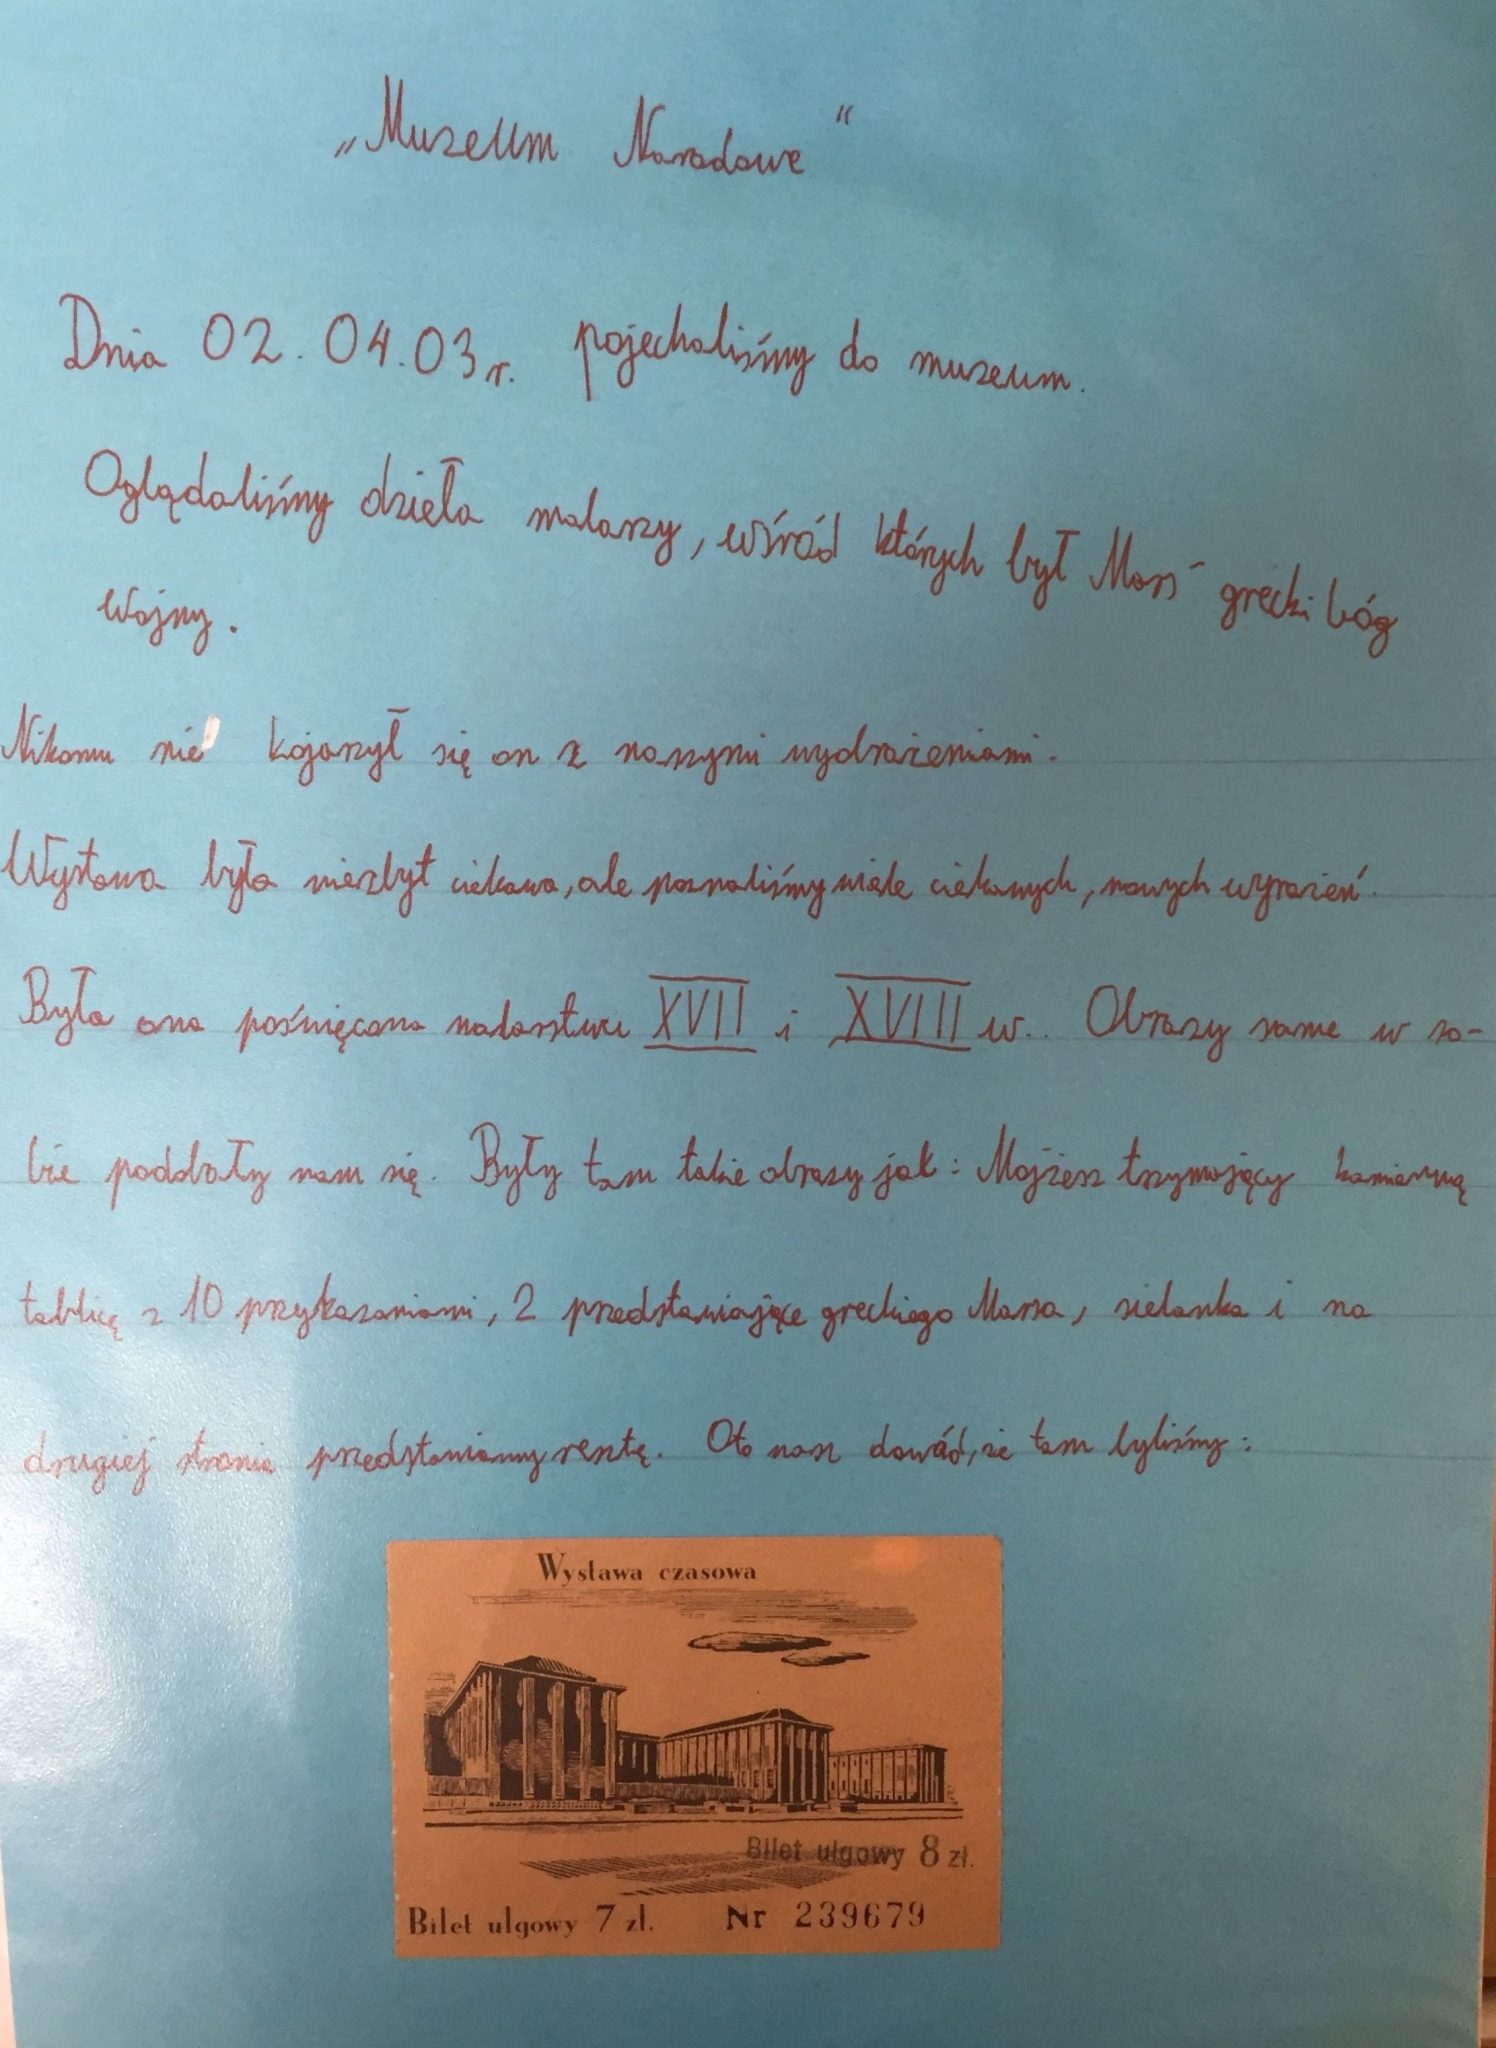 „Muzeum Narodowe"
Dnia 02.04.03 r. pojechaliśmy do muzeum.
Oglądaliśmy dzieła malarzy, wśród których był Mars - grecki bóg
wojny.
Nikomu nie kojarzył się on z naszymi wydrażeniami.
Wystawa była niezbyt ciekawa, ale poznaliśmy wiele ciekawych, nowych wyrażeń.
Była ona poświęcona malarstwu XVII i XVIII w.. Obrazy same w so-
bie podobały nam się. Były tam takie obrazy jak: Mojżesz trzymający kamienną
tablicę z 10 przykazaniami, 2 przedstawiające greckiego Marsa, sielanka i na
drugiej stronie przedstawiamy resztę. Oto nasz dowód, że tam byliśmy:
Wystawa czasowa
Bilet ulgowy 8 zł.
Bilet ulgowy 7 zł. Nr 239679